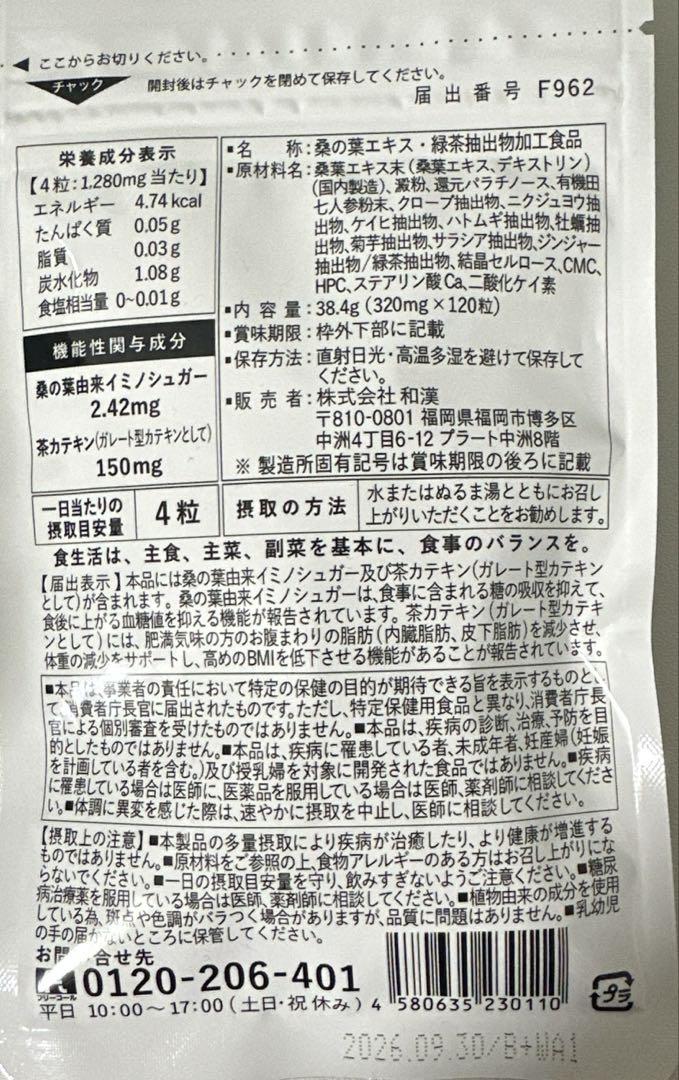 ◀ ここからお切りください。
チャック
開封後はチャックを閉めて保存してください。
届出番号 F962
栄養成分表示
【4粒:1,280mg当たり】
エネルギー 4.74kcal
たんぱく質 0.05g
脂質 0.03g
炭水化物 1.08g
食塩相当量 0~0.01g
機能性関与成分
桑の葉由来イミノシュガー
2.42mg
茶カテキン(ガレート型カテキンとして)
150mg
■名 称:桑の葉エキス・緑茶抽出物加工食品
■原材料名:桑葉エキス末(桑葉エキス、デキストリン)
(国内製造)、澱粉、還元パラチノース、有機田
七人参粉末、クローブ抽出物、ニクジュヨウ抽出
物、ケイヒ抽出物、ハトムギ抽出物、牡蠣抽出
物、菊芋抽出物、サラシア抽出物、ジンジャー
抽出物/緑茶抽出物、結晶セルロース、CMC、
HPC、ステアリン酸Ca、二酸化ケイ素
■内容量:38.4g(320mg×120粒)
■賞味期限:枠外下部に記載
■保存方法:直射日光・高温多湿を避けて保存して
ください。
■販売者:株式会社 和漢
〒810-0801 福岡県福岡市博多区
中洲4丁目6-12 プラート中洲8階
※ 製造所固有記号は賞味期限の後ろに記載
一日当たりの
摂取目安量
4粒
摂取の方法
水またはぬるま湯とともにお召し
上がりいただくことをお勧めします。
食生活は、主食、主菜、副菜を基本に、食事のバランスを。
【届出表示】本品には桑の葉由来イミノシュガー及び茶カテキン(ガレート型カテキン
として)が含まれます。桑の葉由来イミノシュガーは、食事に含まれる糖の吸収を抑えて、
食後に上がる血糖値を抑える機能が報告されています。茶カテキン(ガレート型カテキ
ンとして)には、肥満気味の方のお腹まわりの脂肪(内臓脂肪、皮下脂肪)を減少させ、
体重の減少をサポートし、高めのBMIを低下させる機能があることが報告されています。
■本品は、事業者の責任において特定の保健の目的が期待できる旨を表示するものとし
て、消費者庁長官に届出されたものです。ただし、特定保健用食品と異なり、消費者庁長
官による個別審査を受けたものではありません。■本品は、疾病の診断、治療、予防を目
的としたものではありません。■本品は、疾病に罹患している者、未成年者、妊産婦(妊娠
を計画している者を含む。)及び授乳婦を対象に開発された食品ではありません。■疾病
に罹患している場合は医師に、医薬品を服用している場合は医師、薬剤師に相談してくださ
い。■体調に異変を感じた際は、速やかに摂取を中止し、医師に相談してください。
【摂取上の注意】■本製品の多量摂取により疾病が治癒したり、より健康が増進する
ものではありません。■原材料をご参照の上、食物アレルギーのある方はお召し上がりにな
らないでください。■一日の摂取目安量を守り、飲みすぎないようご注意ください。■糖尿
病治療薬を服用している場合は医師、薬剤師に相談してください。■植物由来の成分を使用
している為、斑点や色調がバラつく場合がありますが、品質に問題はありません。■乳幼児
の手の届かないところに保管してください。
お問い合せ先
フリーコール
0120-206-401
平日 10:00~17:00(土日・祝休み)
4 580635 230110
プラ
2026.09.30/B+WA1